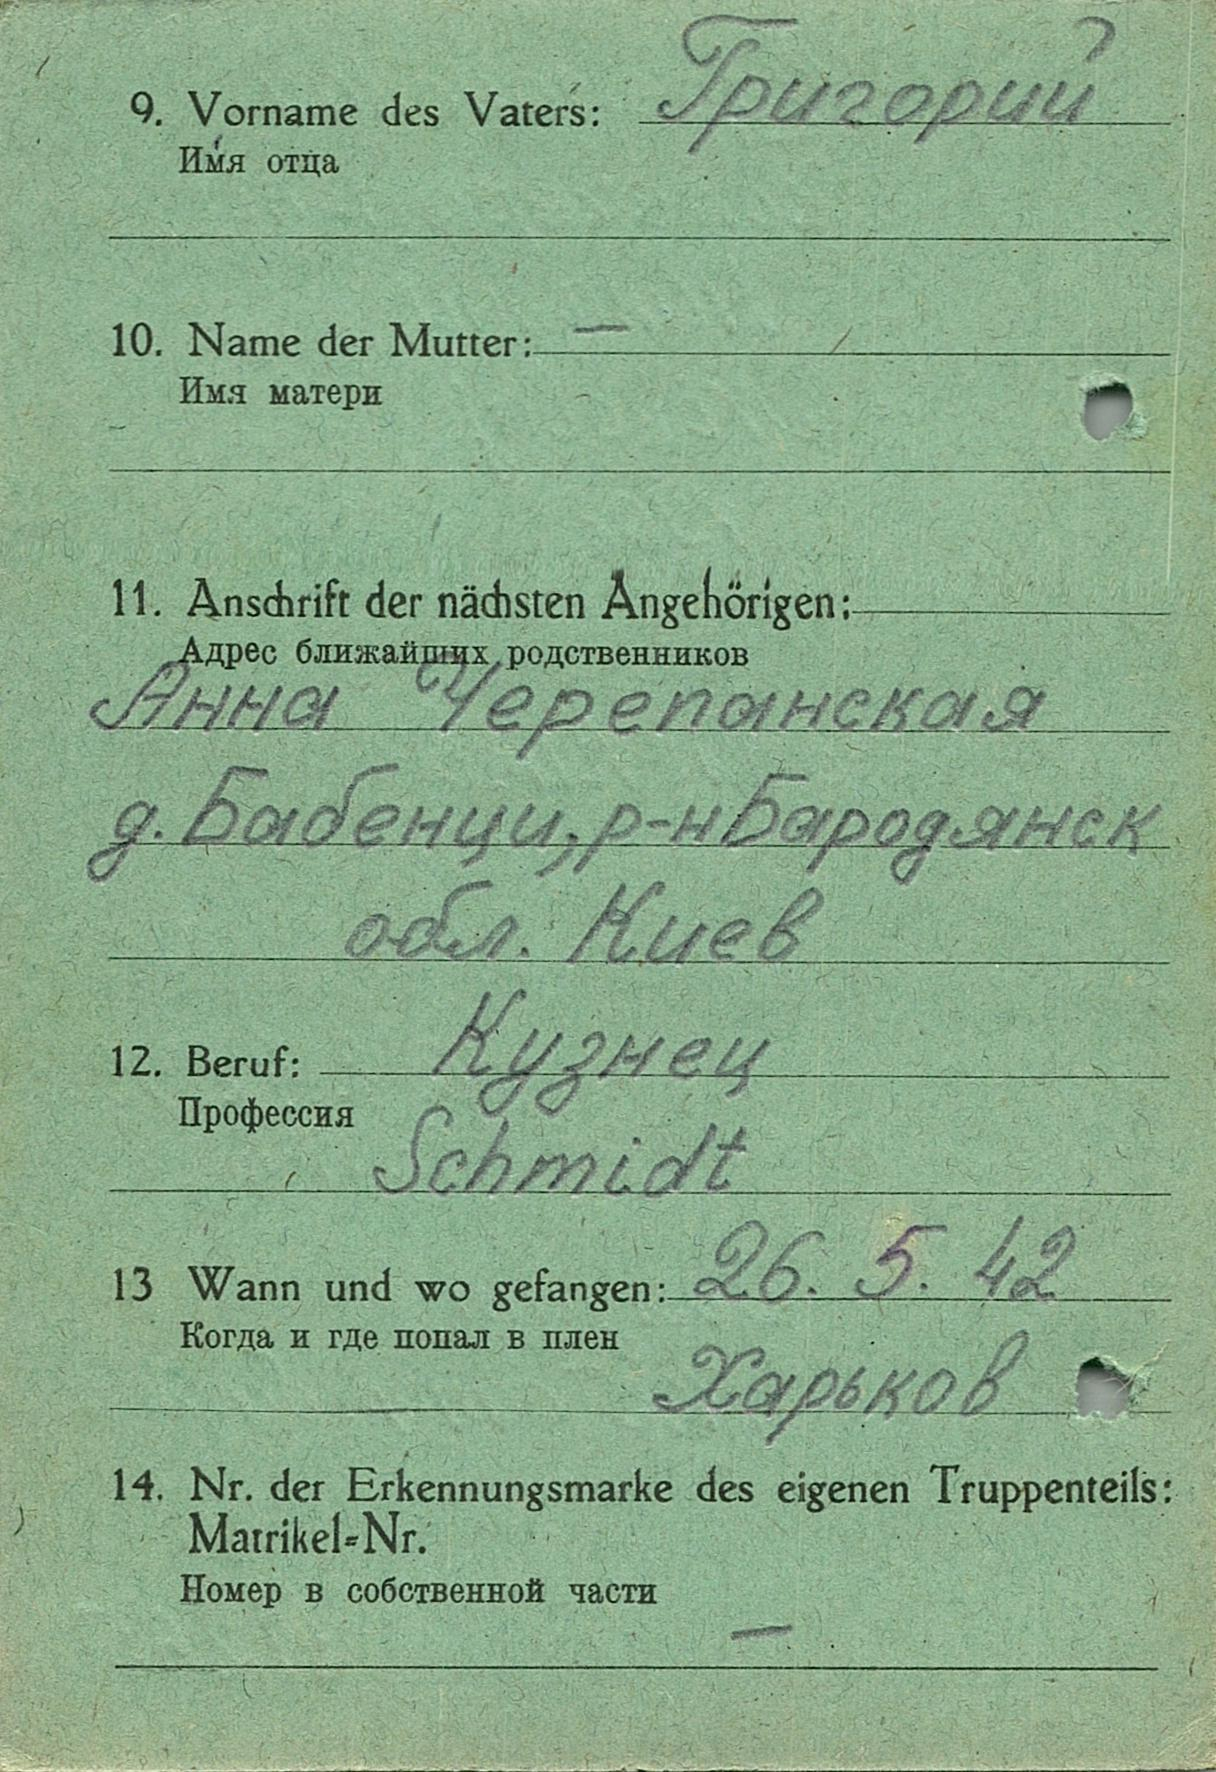 9. Vorname des Vaters: Григорий
Имя отца
10. Name der Mutter: —
Имя матери
11. Anschrift der nächsten Angehörigen:
Адрес ближайших родственников
Анна Черепанская
д. Бабенци, р-н Бародянск
обл. Киев
12. Beruf: Кузнец
Профессия
Schmidt
13 Wann und wo gefangen: 26. 5. 42
Когда и где попал в плен
Харьков
14. Nr. der Erkennungsmarke des eigenen Truppenteils:
Matrikel-Nr.
Номер в собственной части
—